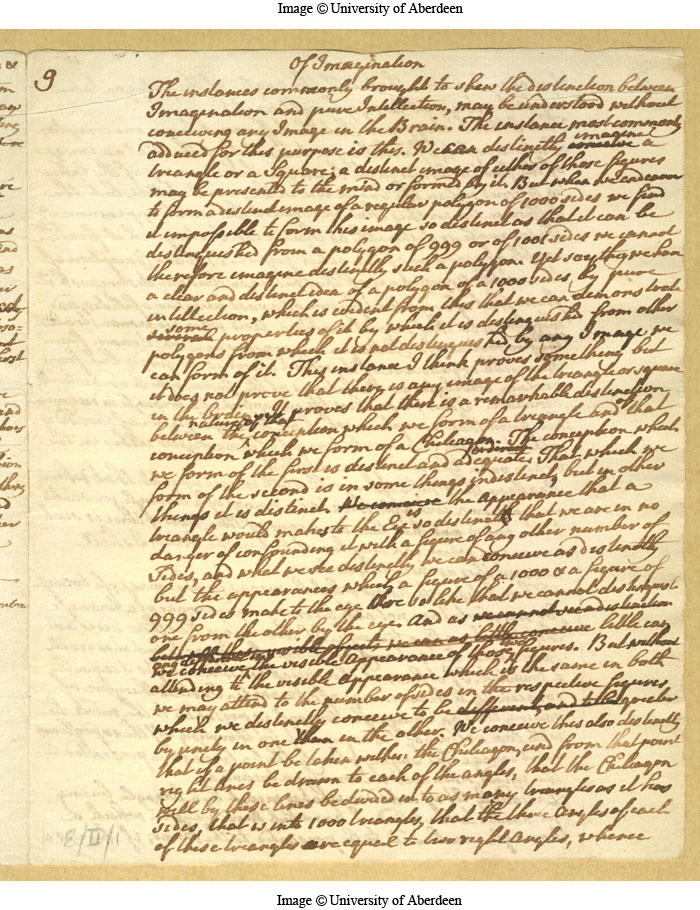 Image © University of Aberdeen
9
Of Imagination
The instances commonly brought to shew the distinction between
Imagination and pure Intellection, may be understood without
conceiving any Image in the Brain. The instance most commonly
adduced for this purpose is this. We can distinctly imagine
conceive a
triangle or a Square; a distinct image of either of those figures
may be presented to the mind or formed by it. But when we endeavour
to form a distinct image of a regular polygon of 1000 sides we find
it impossible to form this image so distinct as that it can be
distinguished from a polygon of 999 or of 1001 sides we cannot
therefore imagine distinctly such a polygon. Yet say they we have
a clear and distinct idea of a polygon of a 1000 sides by pure
intellection, which is evident from this that we can demonstrate
some
several properties of it by which it is distinguished from other
polygons from which it is not distinguished by any Image we
can form of it. This instance I think proves something but
it does not prove that there is any image of the triangle or square
in the brain. It proves that there is a remarkable distinction
nature of that
between the conception which we form of a triangle and of that
conception which we form of a Chiliagon. The conception which
we form of the first is distinct and adequate. That which we
form of the second is in some things indistinct, but in other
things it is distinct. We conceive the appearance that a
triangle would make to the Eye is so distinct that we are in no
danger of confounding it with a figure of any other number of
Sides, and what we see distinctly we can conceive as distinctly
but the appearances which a figure of a 1000 & a figure of
999 sides make to the eye are so like that we cannot distinguish
one from the other by the eye. And as we cannot see a distinction
visible objects we can as little conceive little can
we conceive the visible appearance of those figures. But without
attending to the visible appearance which is the same in both
we may attend to the number of sides in the respective figures
which we distinctly conceive to be different, and to be greater
by unity in one than in the other. We conceive this also distinctly
that if a point be taken within the Chiliagon, and from that point
right lines be drawn to each of the angles, that the Chiliagon
will by these lines be divided into as many triangles as it has
sides, that is into 1000 triangles, that the three Angles of each
of these triangles are equal to two right Angles, whence
8/II/1
Image © University of Aberdeen